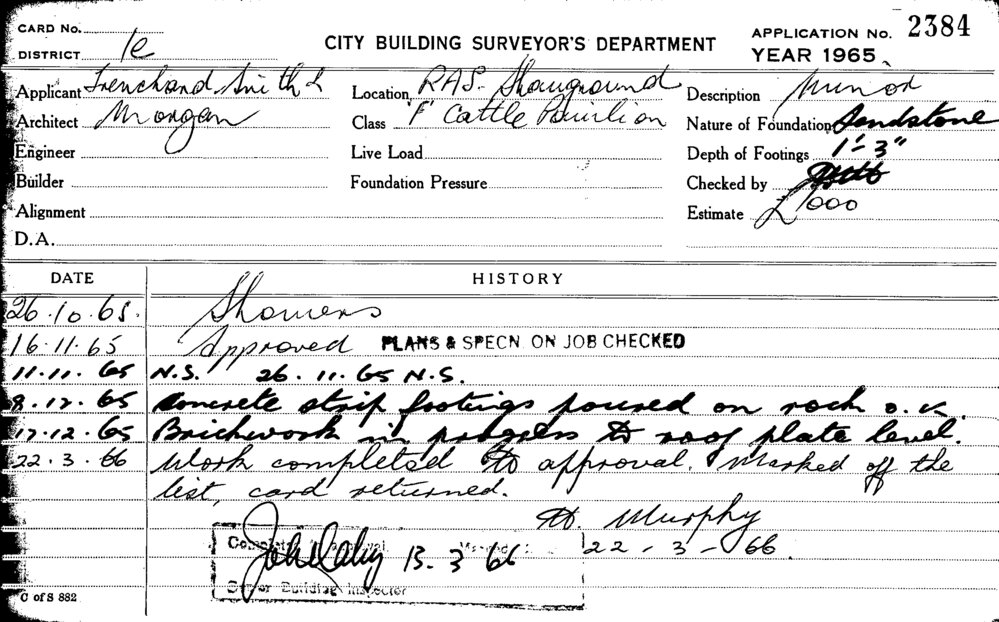 CARD No.
DISTRICT 1e
CITY BUILDING SURVEYOR'S DEPARTMENT
APPLICATION No. 2384
YEAR 1965
Applicant Trenchard Smith &
Architect Morgan
Engineer
Builder
Alignment
D.A.
Location RAS. Showground
Class "F" Cattle Pavilion
Live Load
Foundation Pressure
Description Minor
Nature of Foundation Sandstone
Depth of Footings 1'- 3"
Checked by
Estimate £1000
DATE HISTORY
26.10.65. Showers
16.11.65 Approved PLANS & SPECN. ON JOB CHECKED
11.11.65 N.S. 26.11.65 N.S.
8.12.65 Concrete strip footings poured on rock o.k.
17.12.65 Brickwork in progress to roof plate level.
22.3.66 Work completed to approval. Marked off the
list, card returned.
Murphy
22-3-66.
13.3.66
Building Inspector
C of S 882